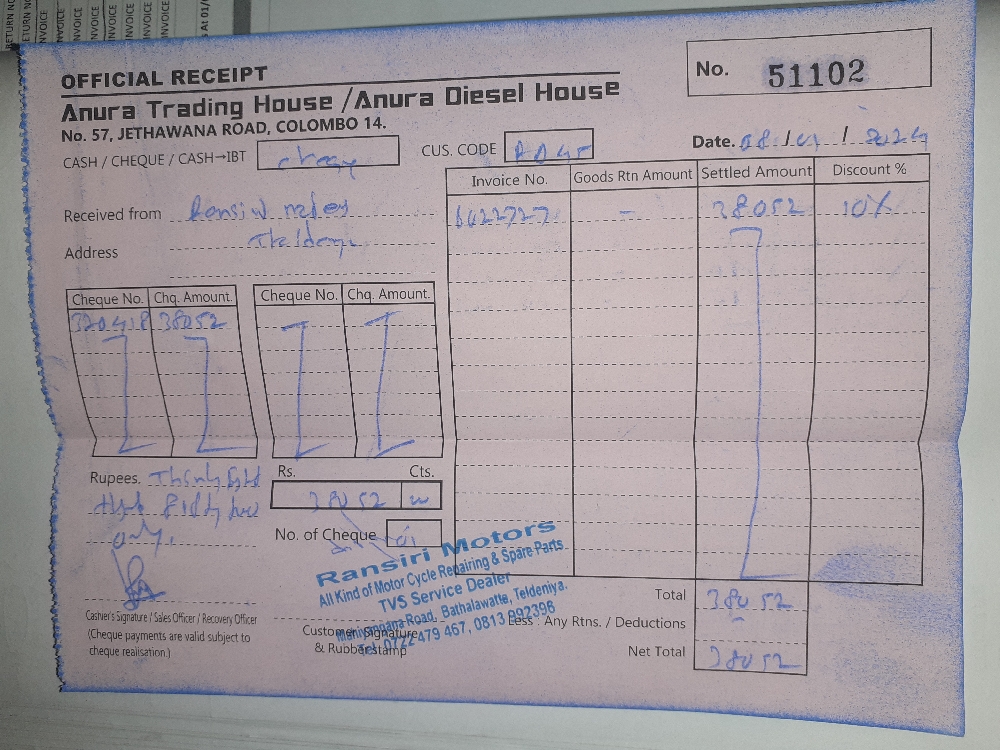 RETURN NO
INVOICE
INVOICE
INVOICE
INVOICE
INVOICE
INVOICE
INVOICE
OFFICIAL RECEIPT
No. 51102
Anura Trading House /Anura Diesel House
No. 57, JETHAWANA ROAD, COLOMBO 14.
CASH / CHEQUE / CASH→IBT
CUS. CODE
Date.
Invoice No. Goods Rtn Amount Settled Amount Discount %
6422727 – 38052 10%
Received from
Address
Cheque No. Chq. Amount. Cheque No. Chq. Amount.
320418 38052
Rupees.
Rs. Cts.
38052
only.
No. of Cheque
Ransiri Motors
All Kind of Motor Cycle Repairing & Spare Parts
TVS Service Dealer
Road, Bathalawatte, Teldeniya.
Tel: 0722 479 467, 0813 892396
Cashier's Signature / Sales Officer / Recovery Officer
(Cheque payments are valid subject to
cheque realisation.)
Customer Signature
& Rubber stamp
Total 38052
Less : Any Rtns. / Deductions
Net Total 38052